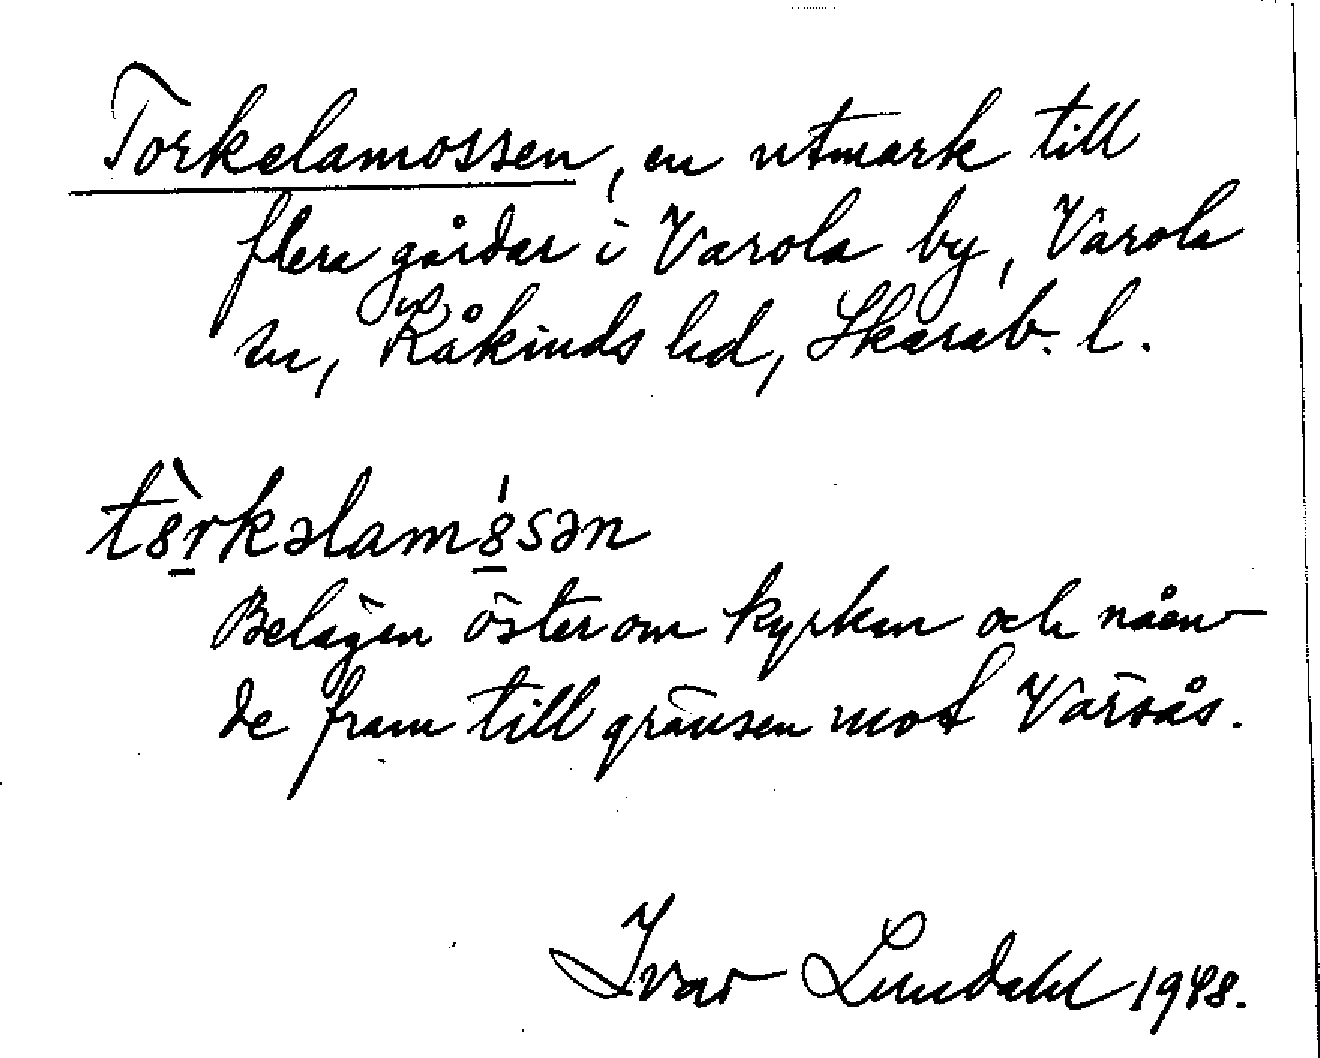 Torkelamossen, en utmark till
flera gårdar i Varola by, Varola
sn, Kåkinds hd, Skarab. l.
tȯ̀rkəlamȯ́sən
Belägen öster om kyrkan och nåen-
de fram till gränsen mot Varsås.
Ivar Lundahl 1948.